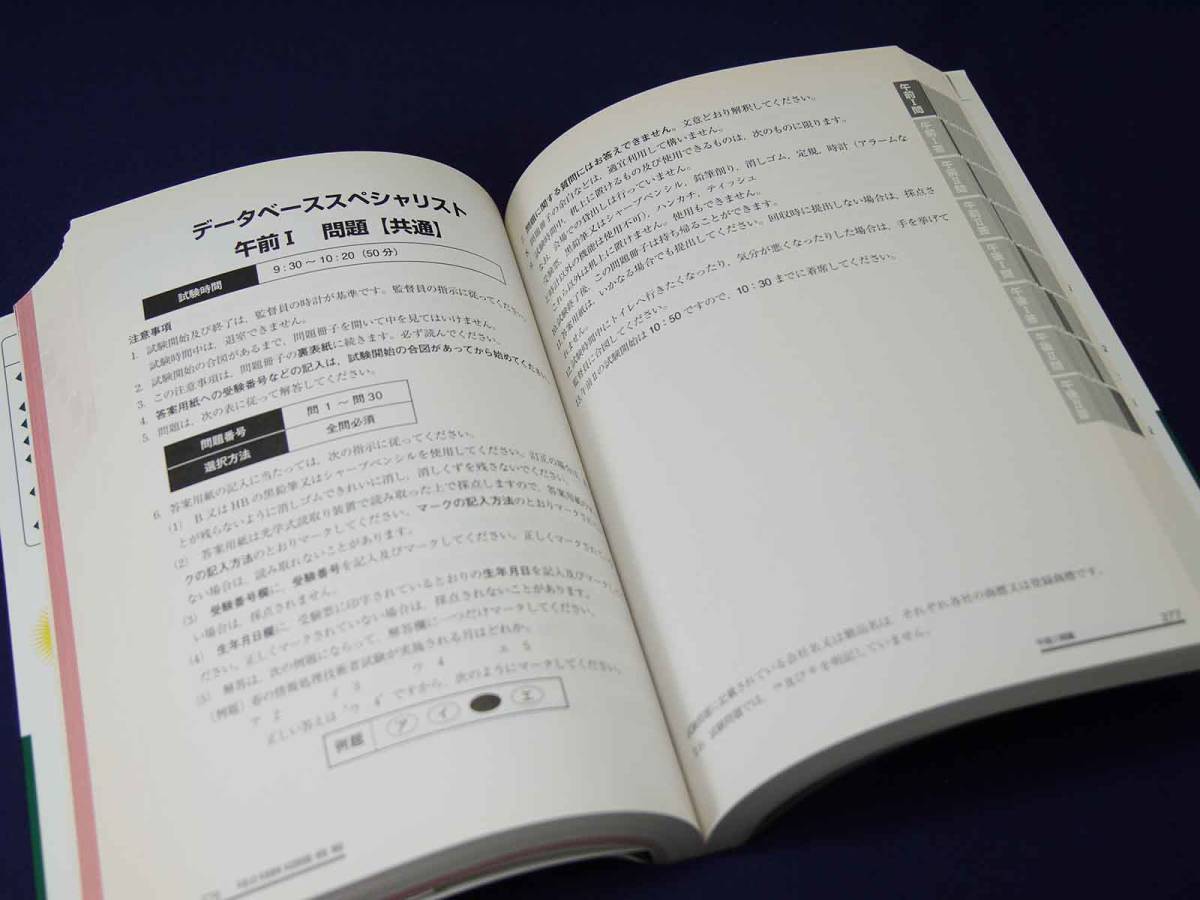 データベーススペシャリスト
午前Ⅰ 問題【共通】
試験時間 9:30～10:20(50分)
注意事項
1. 試験開始及び終了は、監督員の時計が基準です。監督員の指示に従ってください。
試験時間中は、退室できません。
2. 試験開始の合図があるまで、問題冊子を開いて中を見てはいけません。
3. この注意事項は、問題冊子の裏表紙に続きます。必ず読んでください。
4. 答案用紙への受験番号などの記入は、試験開始の合図があってから始めてください。
5. 問題は、次の表に従って解答してください。
問題番号 問1～問30
選択方法 全問必須
6. 答案用紙の記入に当たっては、次の指示に従ってください。
(1) B又はHBの黒鉛筆又はシャープペンシルを使用してください。訂正の場合は、
とが残らないように消しゴムできれいに消し、消しくずを残さないでください。
(2) 答案用紙は光学式読取り装置で読み取った上で採点しますので、答案用紙の
クの記入方法のとおりマークしてください。マークの記入方法のとおりマークされ
ない場合は、読み取れないことがあります。
(3) 受験番号欄に、受験番号を記入及びマークしてください。正しくマークされて
い場合は、採点されません。
(4) 生年月日欄に、受験票に印字されているとおりの生年月日を記入及びマークして
ださい。正しくマークされていない場合は、採点されないことがあります。
(5) 解答は、次の例題にならって、解答欄に一つだけマークしてください。
〔例題〕 春の情報処理技術者試験が実施される月はどれか。
ア 2 イ 3 ウ 4 エ 5
正しい答えは“ウ 4”ですから、次のようにマークしてください。
例題 ア イ エ
問題に関する質問にはお答えできません。文意どおり解釈してください。
問題冊子の余白などは、適宜利用して構いません。
試験時間中、机上に置けるもの及び使用できるものは、次のものに限ります。
なお、会場での貸出しは行っていません。
受験票、黒鉛筆又はシャープペンシル、鉛筆削り、消しゴム、定規、時計(アラームな
ど時計以外の機能は使用不可)、ハンカチ、ティッシュ
これら以外は机上に置けません。使用もできません。
10. 試験終了後、この問題冊子は持ち帰ることができます。
11. 答案用紙は、いかなる場合でも提出してください。回収時に提出しない場合は、採点さ
れません。
12. 試験時間中にトイレへ行きたくなったり、気分が悪くなったりした場合は、手を挙げて
監督員に合図してください。
13. 午前Ⅱの試験開始は10:50ですので、10:30までに着席してください。
試験問題に記載されている会社名又は製品名は、それぞれ各社の商標又は登録商標です。
なお、試験問題では、™及び®を明記していません。
午前Ⅰ問題 277
午前Ⅰ問
午前Ⅰ答
午前Ⅱ問
午前Ⅱ答
午後Ⅰ問
午後Ⅰ答
午後Ⅱ問
午後Ⅱ答